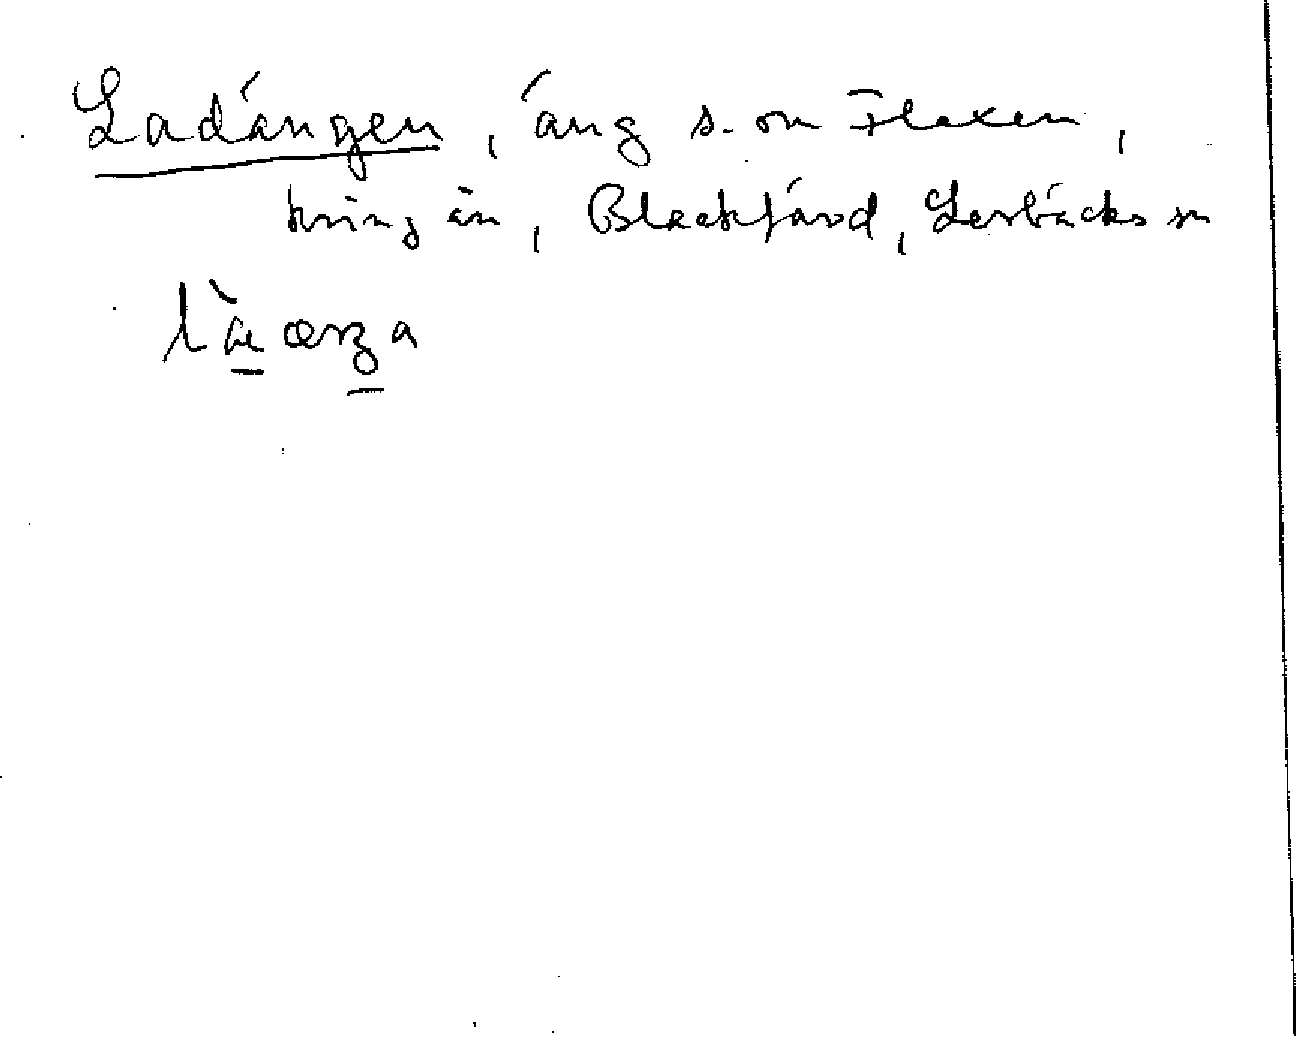 Ladängen, äng s. om Flaxen,
kring ån, Blackfjärd, Lerbäcks sn